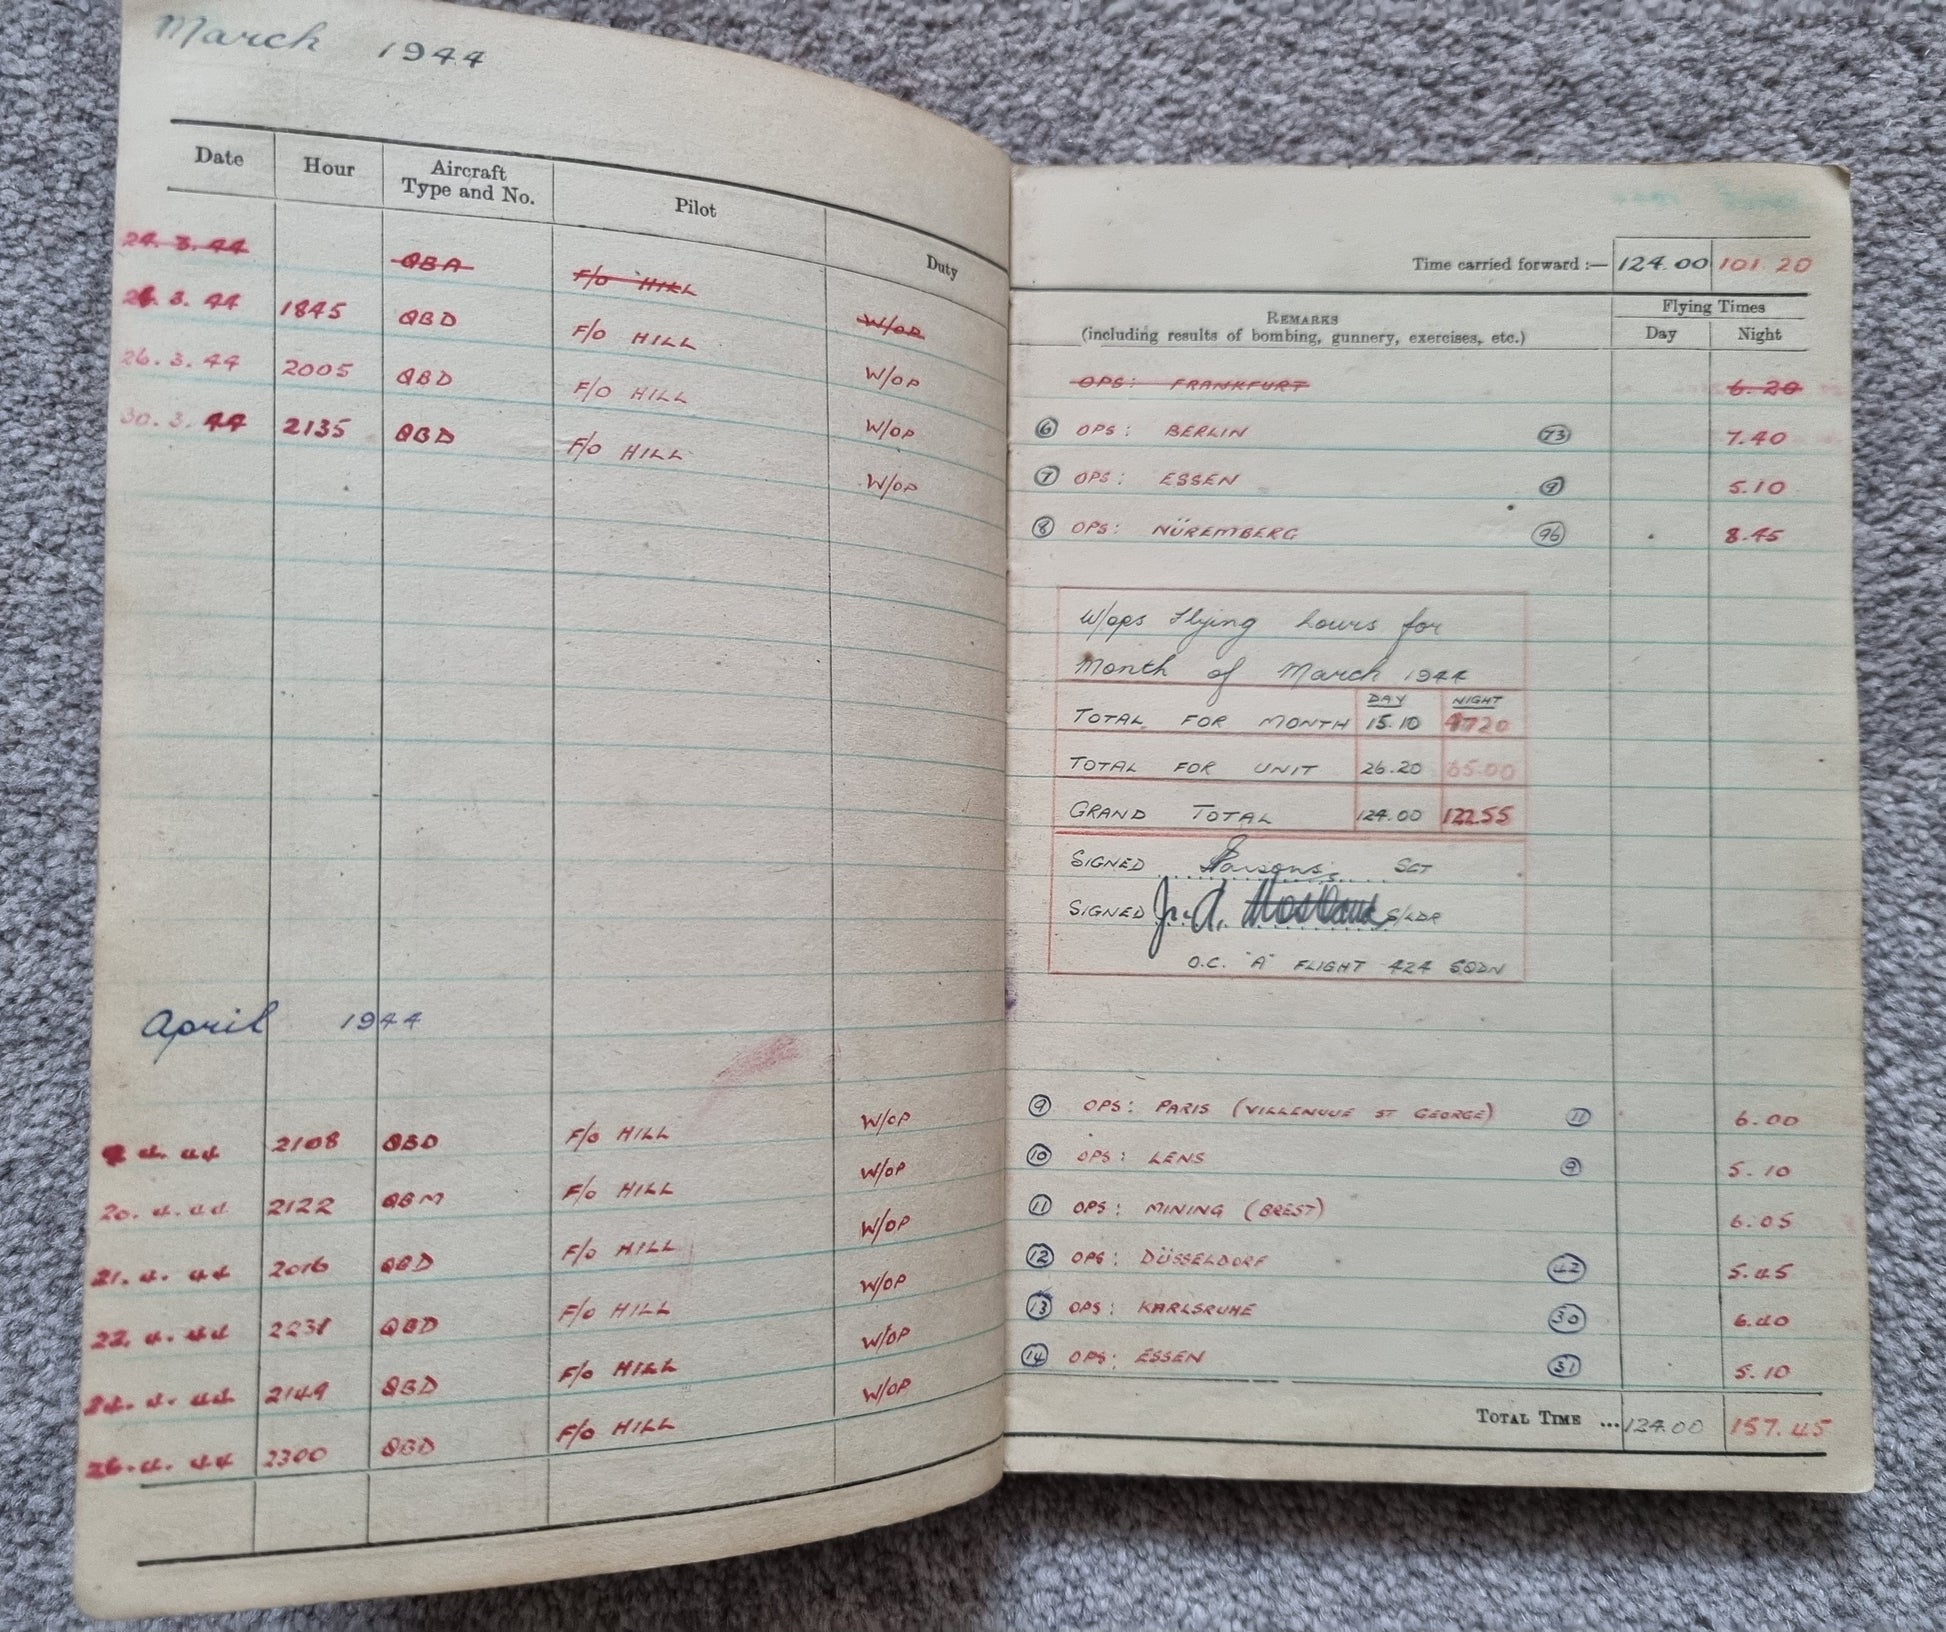 March 1944
Date Hour Aircraft Type and No. Pilot Duty
24. 3. 44 QBA F/O HILL W/OP
3. 44 1845 QBD F/O HILL W/OP
26. 3. 44 2005 QBD F/O HILL W/OP
30. 3. 44 2135 QBD F/O HILL W/OP
April 1944
4. 44 2108 QBD F/O HILL W/OP
20. 4. 44 2122 QBM F/O HILL W/OP
21. 4. 44 2016 QBD F/O HILL W/OP
22. 4. 44 2231 QBD F/O HILL W/OP
24. 4. 44 2149 QBD F/O HILL W/OP
26. 4. 44 2300 QBD F/O HILL W/OP
Time carried forward :— 124.00 101.20
REMARKS
(including results of bombing, gunnery, exercises, etc.)
Flying Times
Day Night
OPS: FRANKFURT 6.20
6 OPS: BERLIN 73 7.40
7 OPS: ESSEN 9 5.10
8 OPS: NÜREMBERG 96 8.45
W/ops Flying hours for
Month of March 1944
DAY NIGHT
TOTAL FOR MONTH 15.10
TOTAL FOR UNIT 26.20 65.00
GRAND TOTAL 124.00 122.55
SIGNED Parsons. SGT
SIGNED S/LDR
O.C. "A" FLIGHT 424 SQDN
9 OPS: PARIS (VILLENUUE ST GEORGE) 11 6.00
10 OPS: LENS 9 5.10
11 OPS: MINING (BREST) 6.05
12 OPS: DÜSSELDORF 42 5.45
13 OPS: KARLSRUHE 30 6.40
14 OPS: ESSEN 31 5.10
TOTAL TIME ... 124.00 157.45